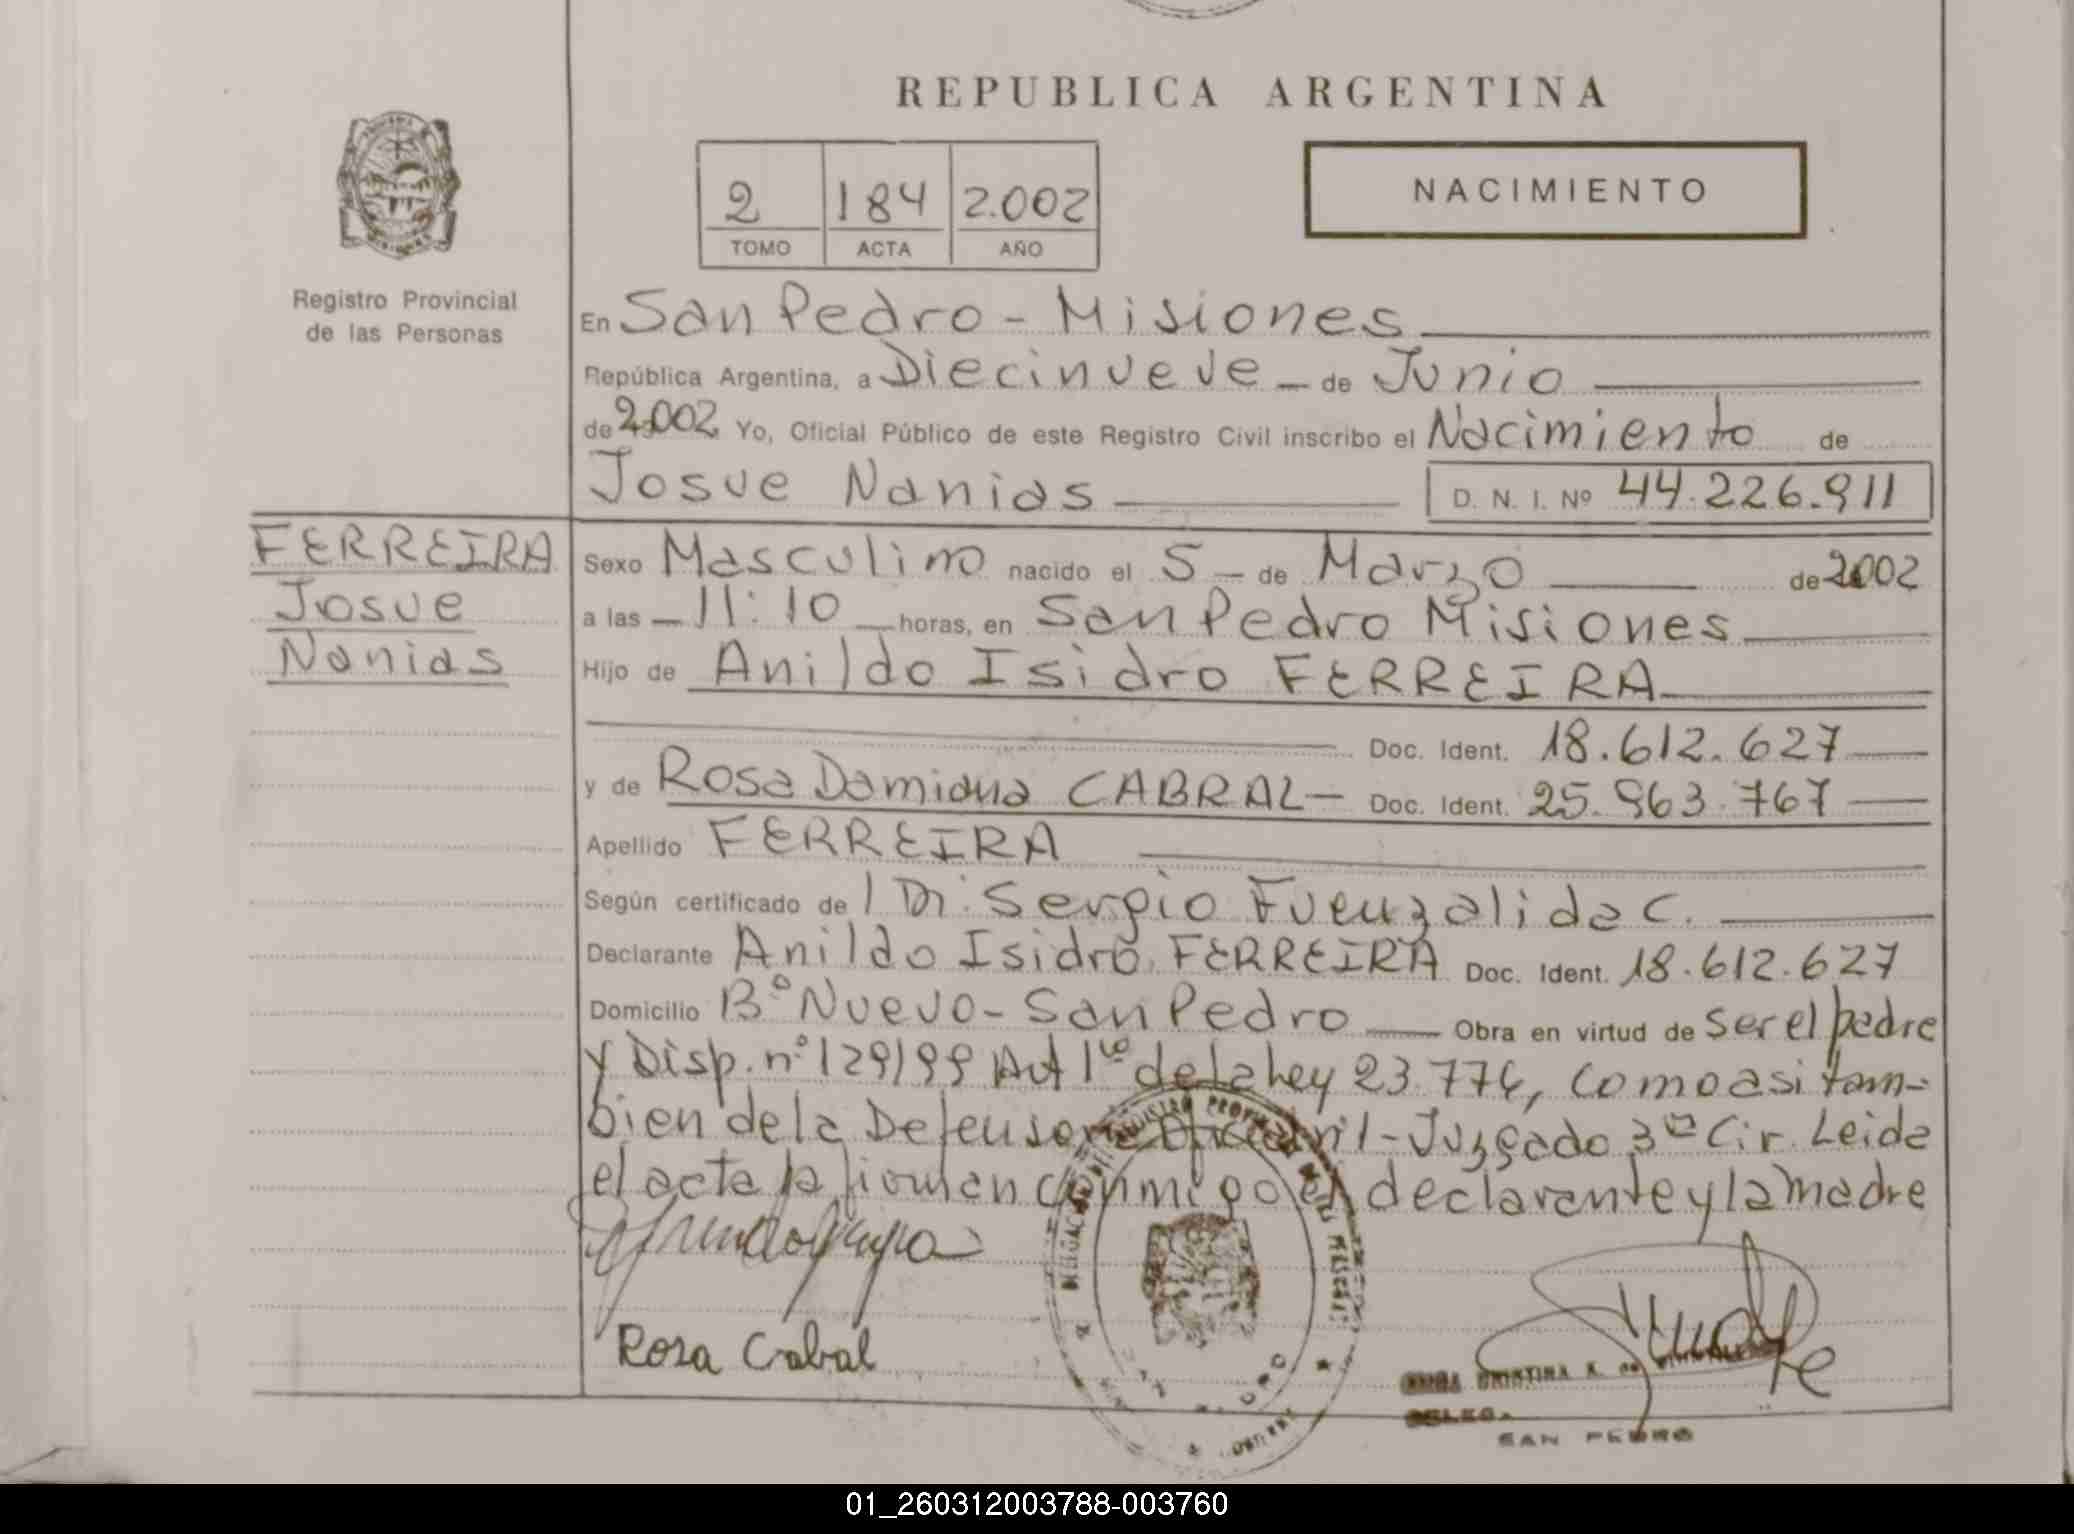 REPUBLICA ARGENTINA
2 184 2.002
TOMO ACTA AÑO
NACIMIENTO
Registro Provincial
de las Personas
En San Pedro - Misiones
República Argentina, a Diecinueve - de Junio
de 2002 Yo, Oficial Público de este Registro Civil inscribo el Nacimiento de
Josue Nanias D. N. I. Nº 44.226.911
FERREIRA
Josue
Nanias
Sexo Masculino nacido el 5 - de Marzo de 2002
a las - 11:10 horas, en San Pedro Misiones
Hijo de Anildo Isidro FERREIRA
Doc. Ident. 18.612.627
y de Rosa Damiana CABRAL - Doc. Ident. 25.963.767
Apellido FERREIRA
Según certificado de l Dr. Sergio Fuenzalida C.
Declarante Anildo Isidro FERREIRA Doc. Ident. 18.612.627
Domicilio Bº Nuevo - San Pedro Obra en virtud de ser el padre
y Disp. nº 129/99 Art 1º de la Ley 23.776, como asi tam-
bien de la Defensoria Juzgado 3ra Cir. Leida
el acta la firman conmigo el declarante y la madre
Rosa Cabral
CRISTINA
DELEG.
SAN PEDRO
01_260312003788-003760